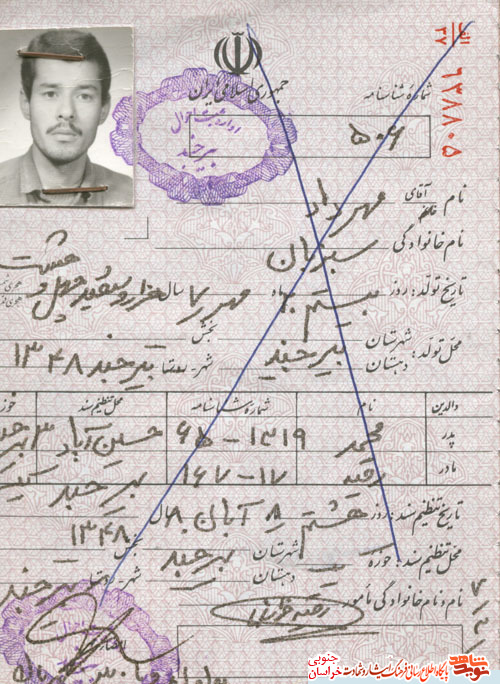 الف
۳۷
۶۳۸۸۰۵
جمهوری اسلامی ایران
شمارهٔ شناسنامه
۵۰۶
اداره ثبت احوال
بیرجند
نام آقای خانم مهرداد
نام خانوادگی سبزبان
تاریخ تولد: روز بیستم ماه مهر سال هزار و سیصد و چهل و هشت
محل تولد: شهرستان بیرجند بخش
دهستان شهر - بیرجند ۱۳۴۸
والدین نام شمارهٔ شناسنامه محل تنظیم سند حوزه
پدر محمد ۱۳۱۹ حسین آباد
مادر رقیه ۱۷ - ۱۶۷ بیرجند
تاریخ تنظیم سند: روز هشتم ۸ آبان سال ۱۳۴۸
محل تنظیم سند: حوزه شهرستان بیرجند بخش
دهستان شهر بیرجند
نام و نام خانوادگی مأمور
نوید شاهد
پایگاه اطلاع رسانی فرهنگ ایثار و شهادت خراسان جنوبی